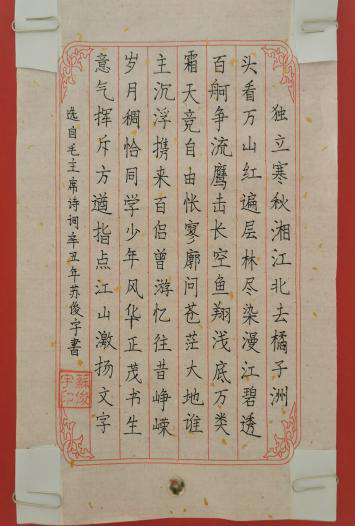 独立寒秋湘江北去橘子洲
头看万山红遍层林尽染漫江碧透
百舸争流鹰击长空鱼翔浅底万类
霜天竞自由怅寥廓问苍茫大地谁
主沉浮携来百侣曾游忆往昔峥嵘
岁月稠恰同学少年风华正茂书生
意气挥斥方遒指点江山激扬文字
选自毛主席诗词辛丑年苏俊宇書
蘇俊
宇印